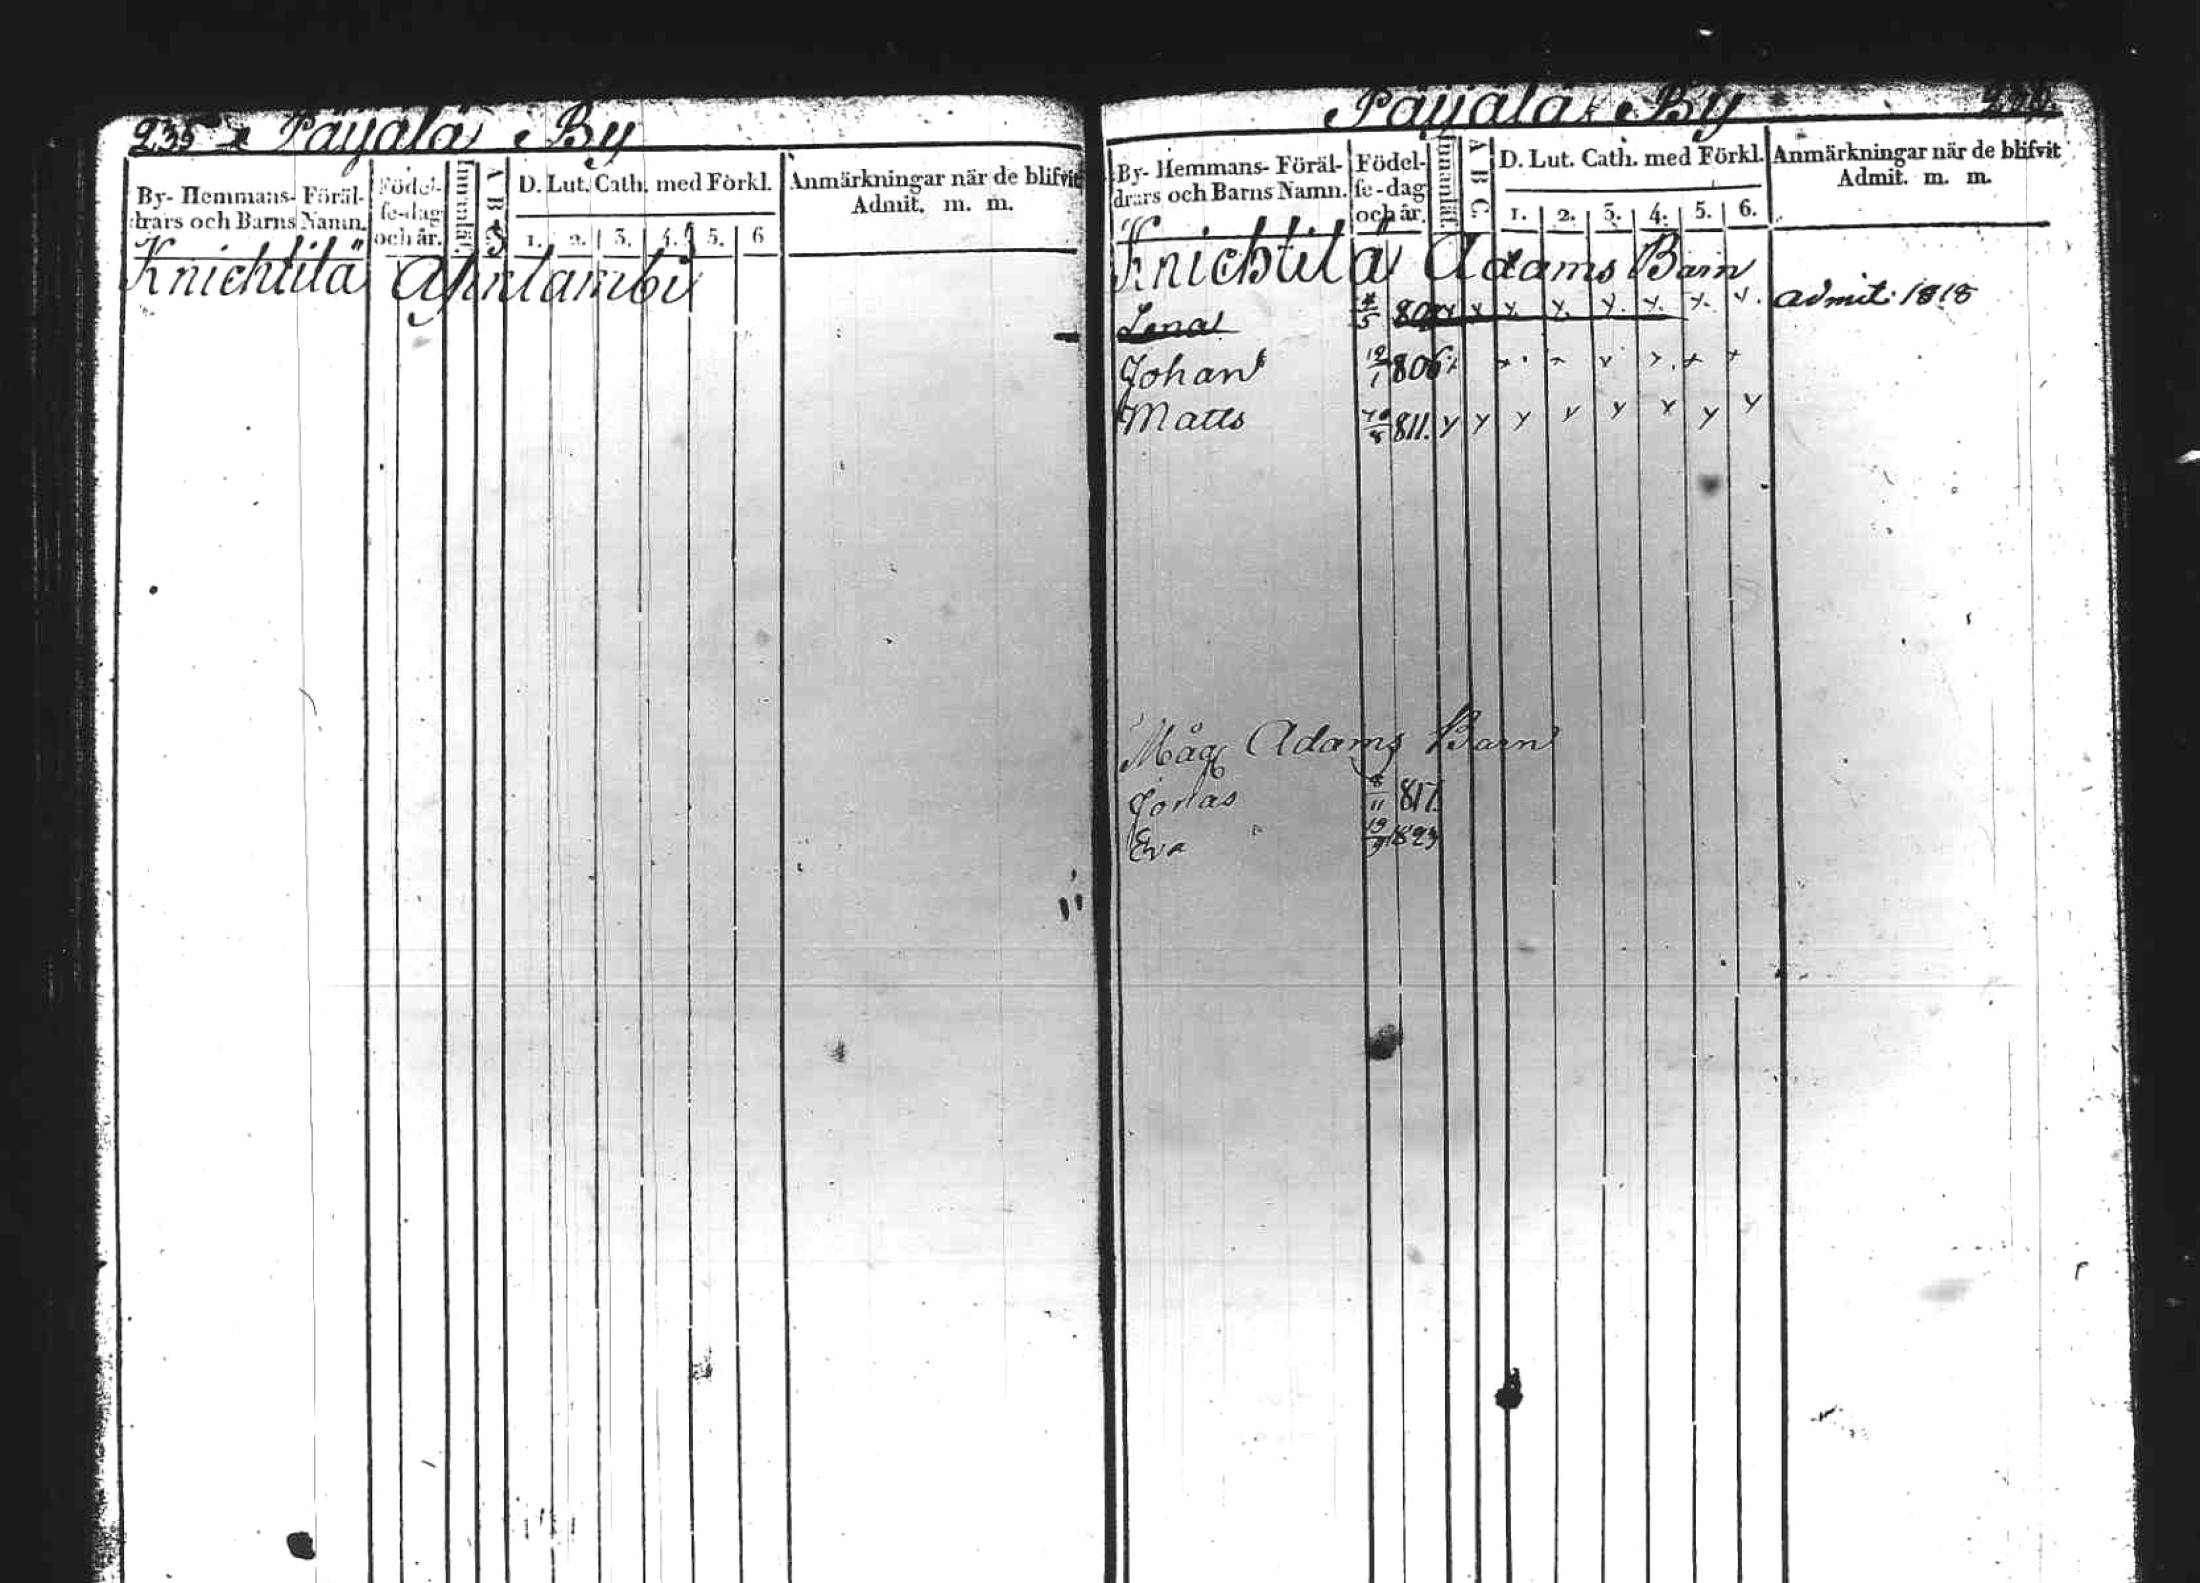 235
Payala By
By- Hemmans- Föräl-
drars och Barns Namn.
Födel-
se-dag
och år.
Innanläs.
A B C
D. Lut. Cath. med Förkl.
1. 2. 3. 4. 5. 6
Anmärkningar när de blifvit
Admit. m. m.
Knichtilä
Payala By
By- Hemmans- Föräl-
drars och Barns Namn.
Födel-
se-dag
och år.
Innanläs.
A B C
D. Lut. Cath. med Förkl.
1. 2. 3. 4. 5. 6.
Anmärkningar när de blifvit
Admit. m. m.
Knichtilä Adams Barn
Lena admit. 1818
Johan 19/1 806
Matts 811.
Måg Adams Barn
Jonas 8/11 817.
Eva 19/9 1823